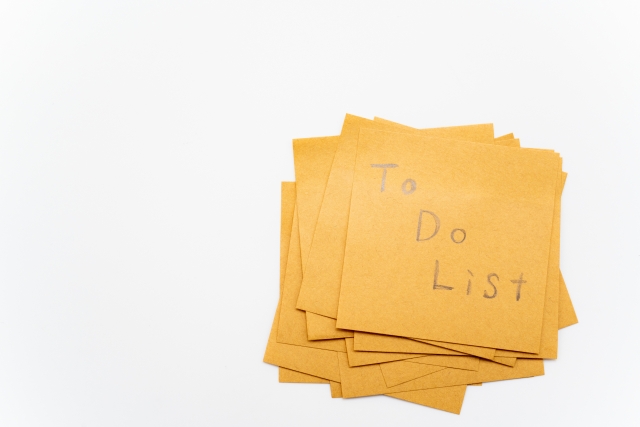 To
Do
List